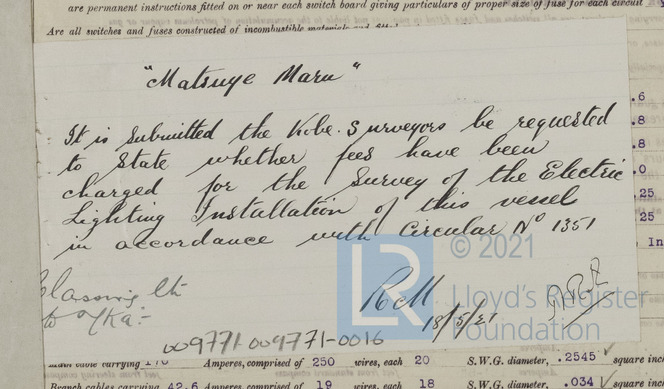 are permanent instructions fitted on or near each switch board giving particulars of proper size of fuse for each circuit
Are all switches and fuses constructed of incombustible materials and
"Matsuye Maru"
It is submitted the Kobe Surveyors be requested
to state whether fees have been
charged for the Survey of the Electric
Lighting Installation of this vessel
in accordance with Circular Nº 1351
.6
.8
.8
.0
25
25
In
© 2021
Lloyd's Register
Foundation
LR
Classing ltr
to
RCM
18/5/21
009771-009771-0016
main cable carrying 170 Amperes, comprised of 250 wires, each 20 S.W.G. diameter, .2545 square inc
Branch cables carrying 42.6 Amperes, comprised of 19 wires, each 18 S.W.G. diameter, .034 square inc